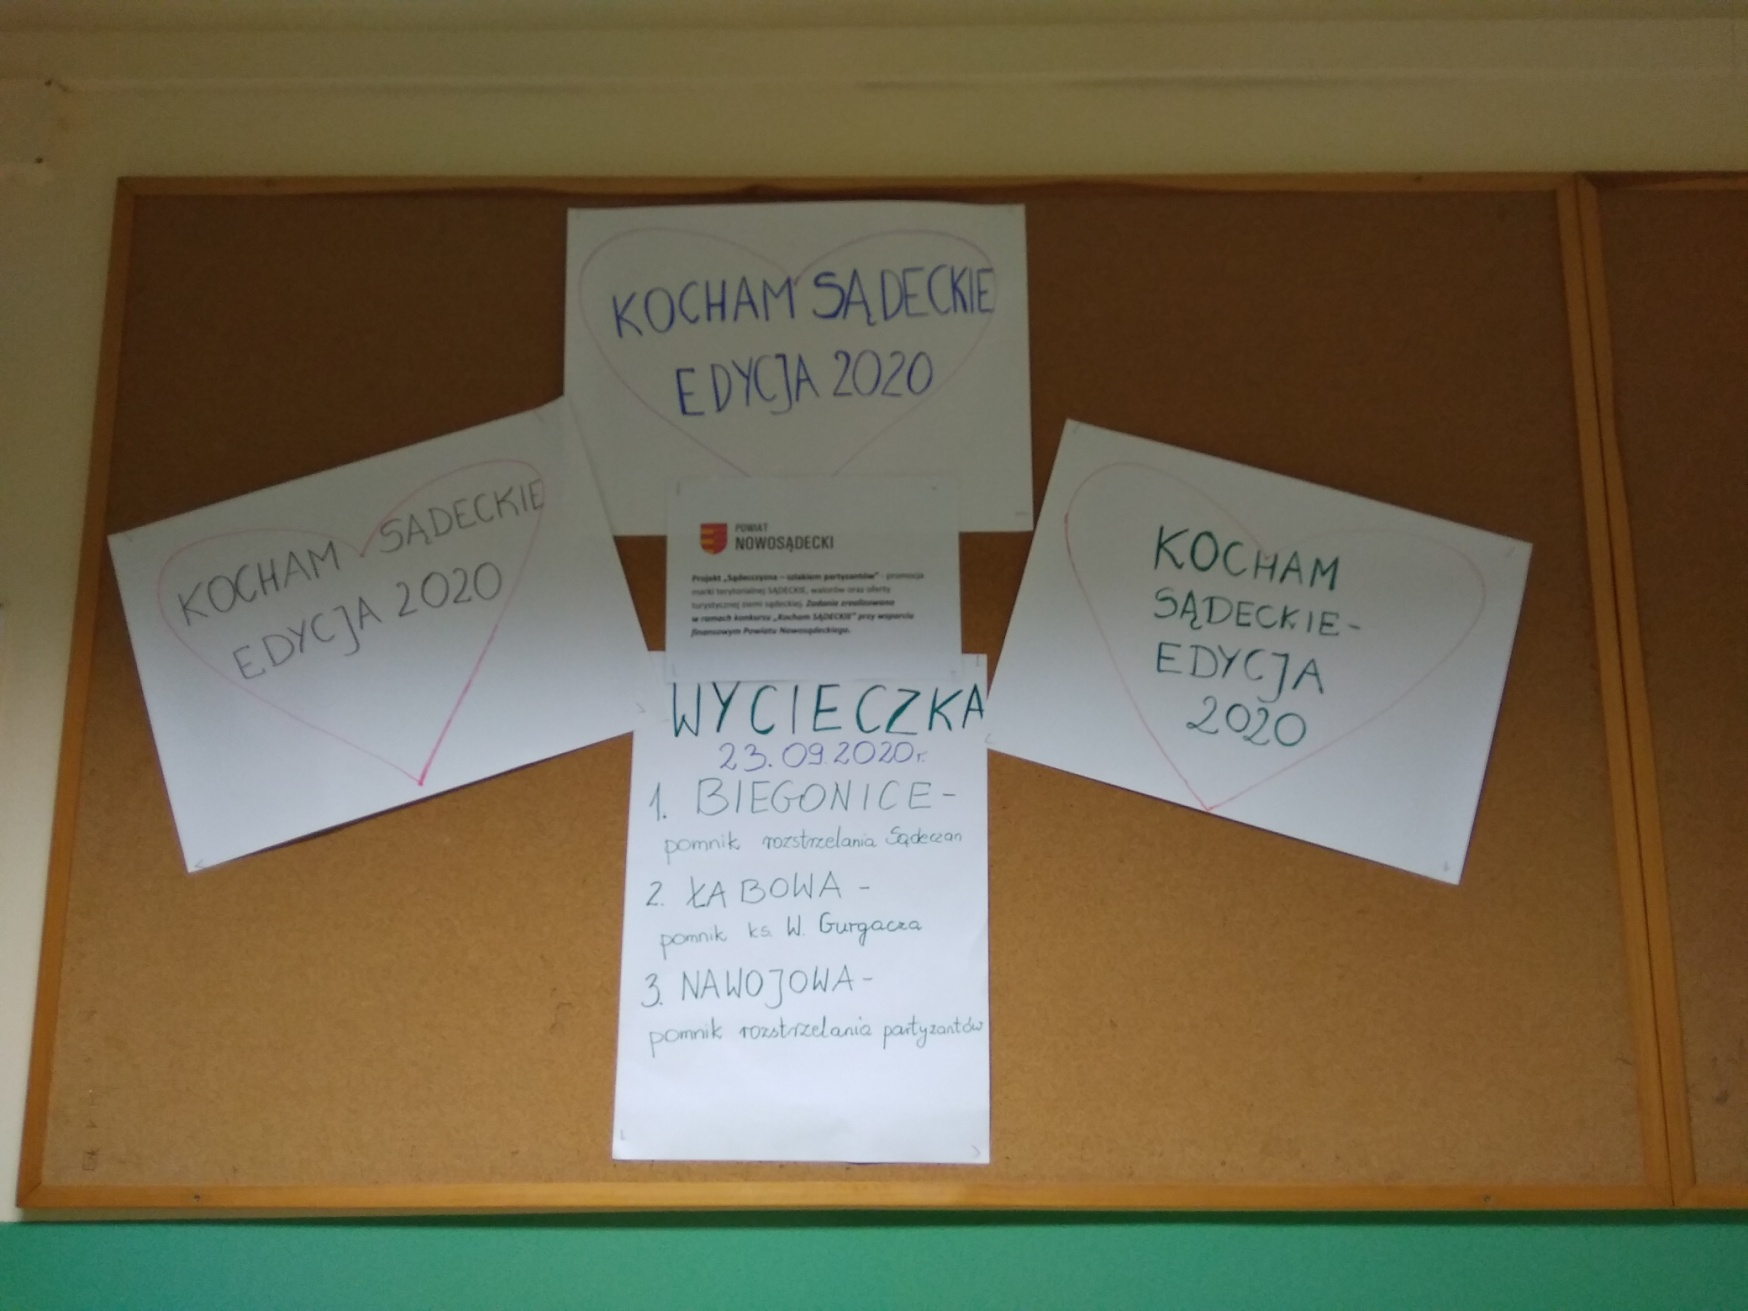 KOCHAM SĄDECKIE
EDYCJA 2020
KOCHAM SĄDECKIE
EDYCJA 2020
POWIAT
NOWOSĄDECKI
Projekt „Sądecczyzna – szlakiem partyzantów" - promocja
marki terytorialnej SĄDECKIE, walorów oraz oferty
turystycznej ziemi sądeckiej. Zadanie zrealizowano
w ramach konkursu „Kocham SĄDECKIE" przy wsparciu
finansowym Powiatu Nowosądeckiego.
KOCHAM
SĄDECKIE-
EDYCJA
2020
WYCIECZKA
23.09.2020r.
1. BIEGONICE -
pomnik rozstrzelania Sądeczan
2. ŁABOWA -
pomnik ks. W. Gurgacza
3. NAWOJOWA -
pomnik rozstrzelania partyzantów